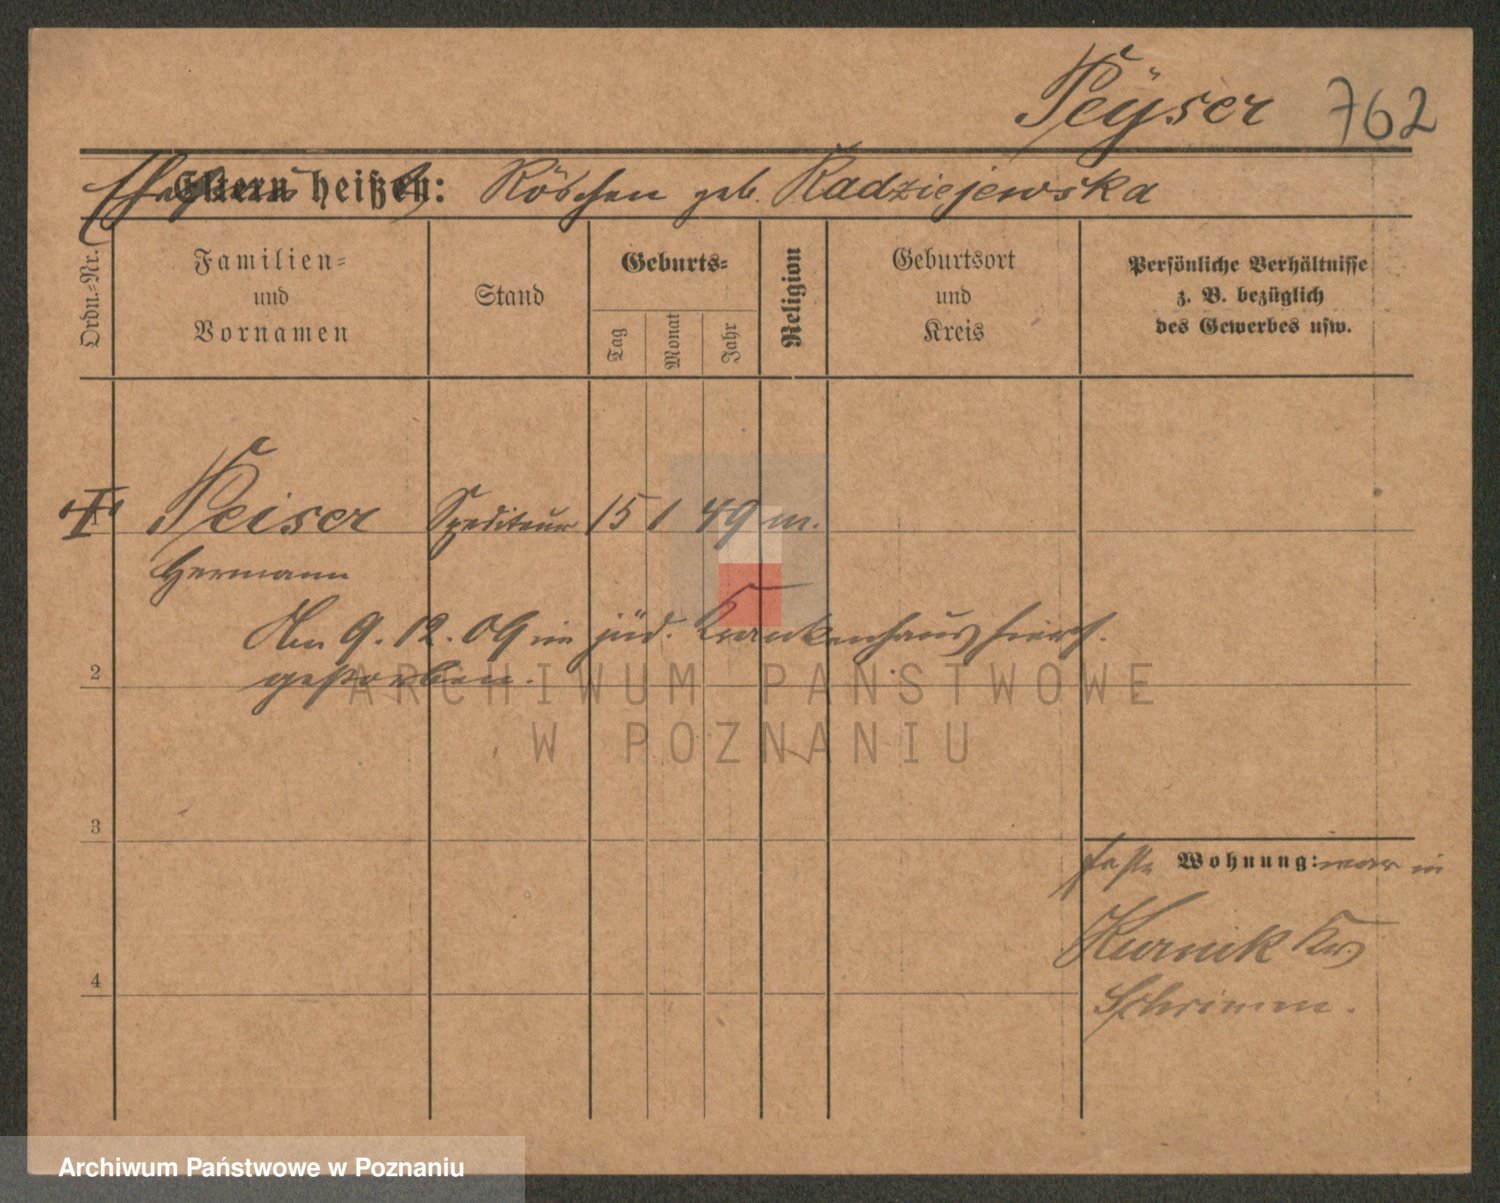 Peÿser 762
Eltern heißen: Röschen geb. Radziejewska
Ordn.-Nr.
Familien-
und
Vornamen
Stand
Geburts-
Tag
Monat
Jahr
Religion
Geburtsort
und
Kreis
Persönliche Verhältnisse
z. B. bezüglich
des Gewerbes usw.
1 Peiser Spediteur 15 1 49 m.
Hermann
Am 9. 12. 09 im jüd. Krankenhaus hiers.
gestorben.
2
ARCHIWUM PAŃSTWOWE
W POZNANIU
3
feste Wohnung: war in
Kurnik Kr.
Schrimm.
4
Archiwum Państwowe w Poznaniu